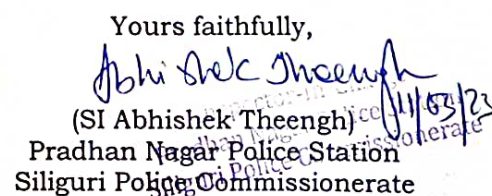 Yours faithfully,
Abhishek Theengh
11/03/23
(SI Abhishek Theengh)
Pradhan Nagar Police Station
Siliguri Police Commissionerate